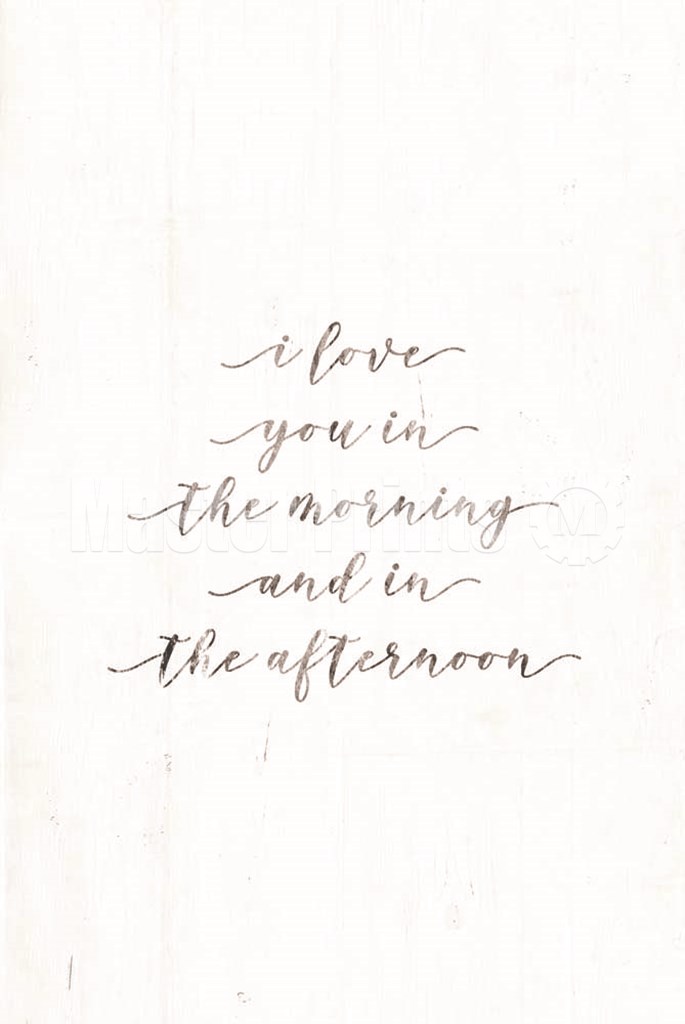 i love
you in
the morning
and in
the afternoon
Master Prints M